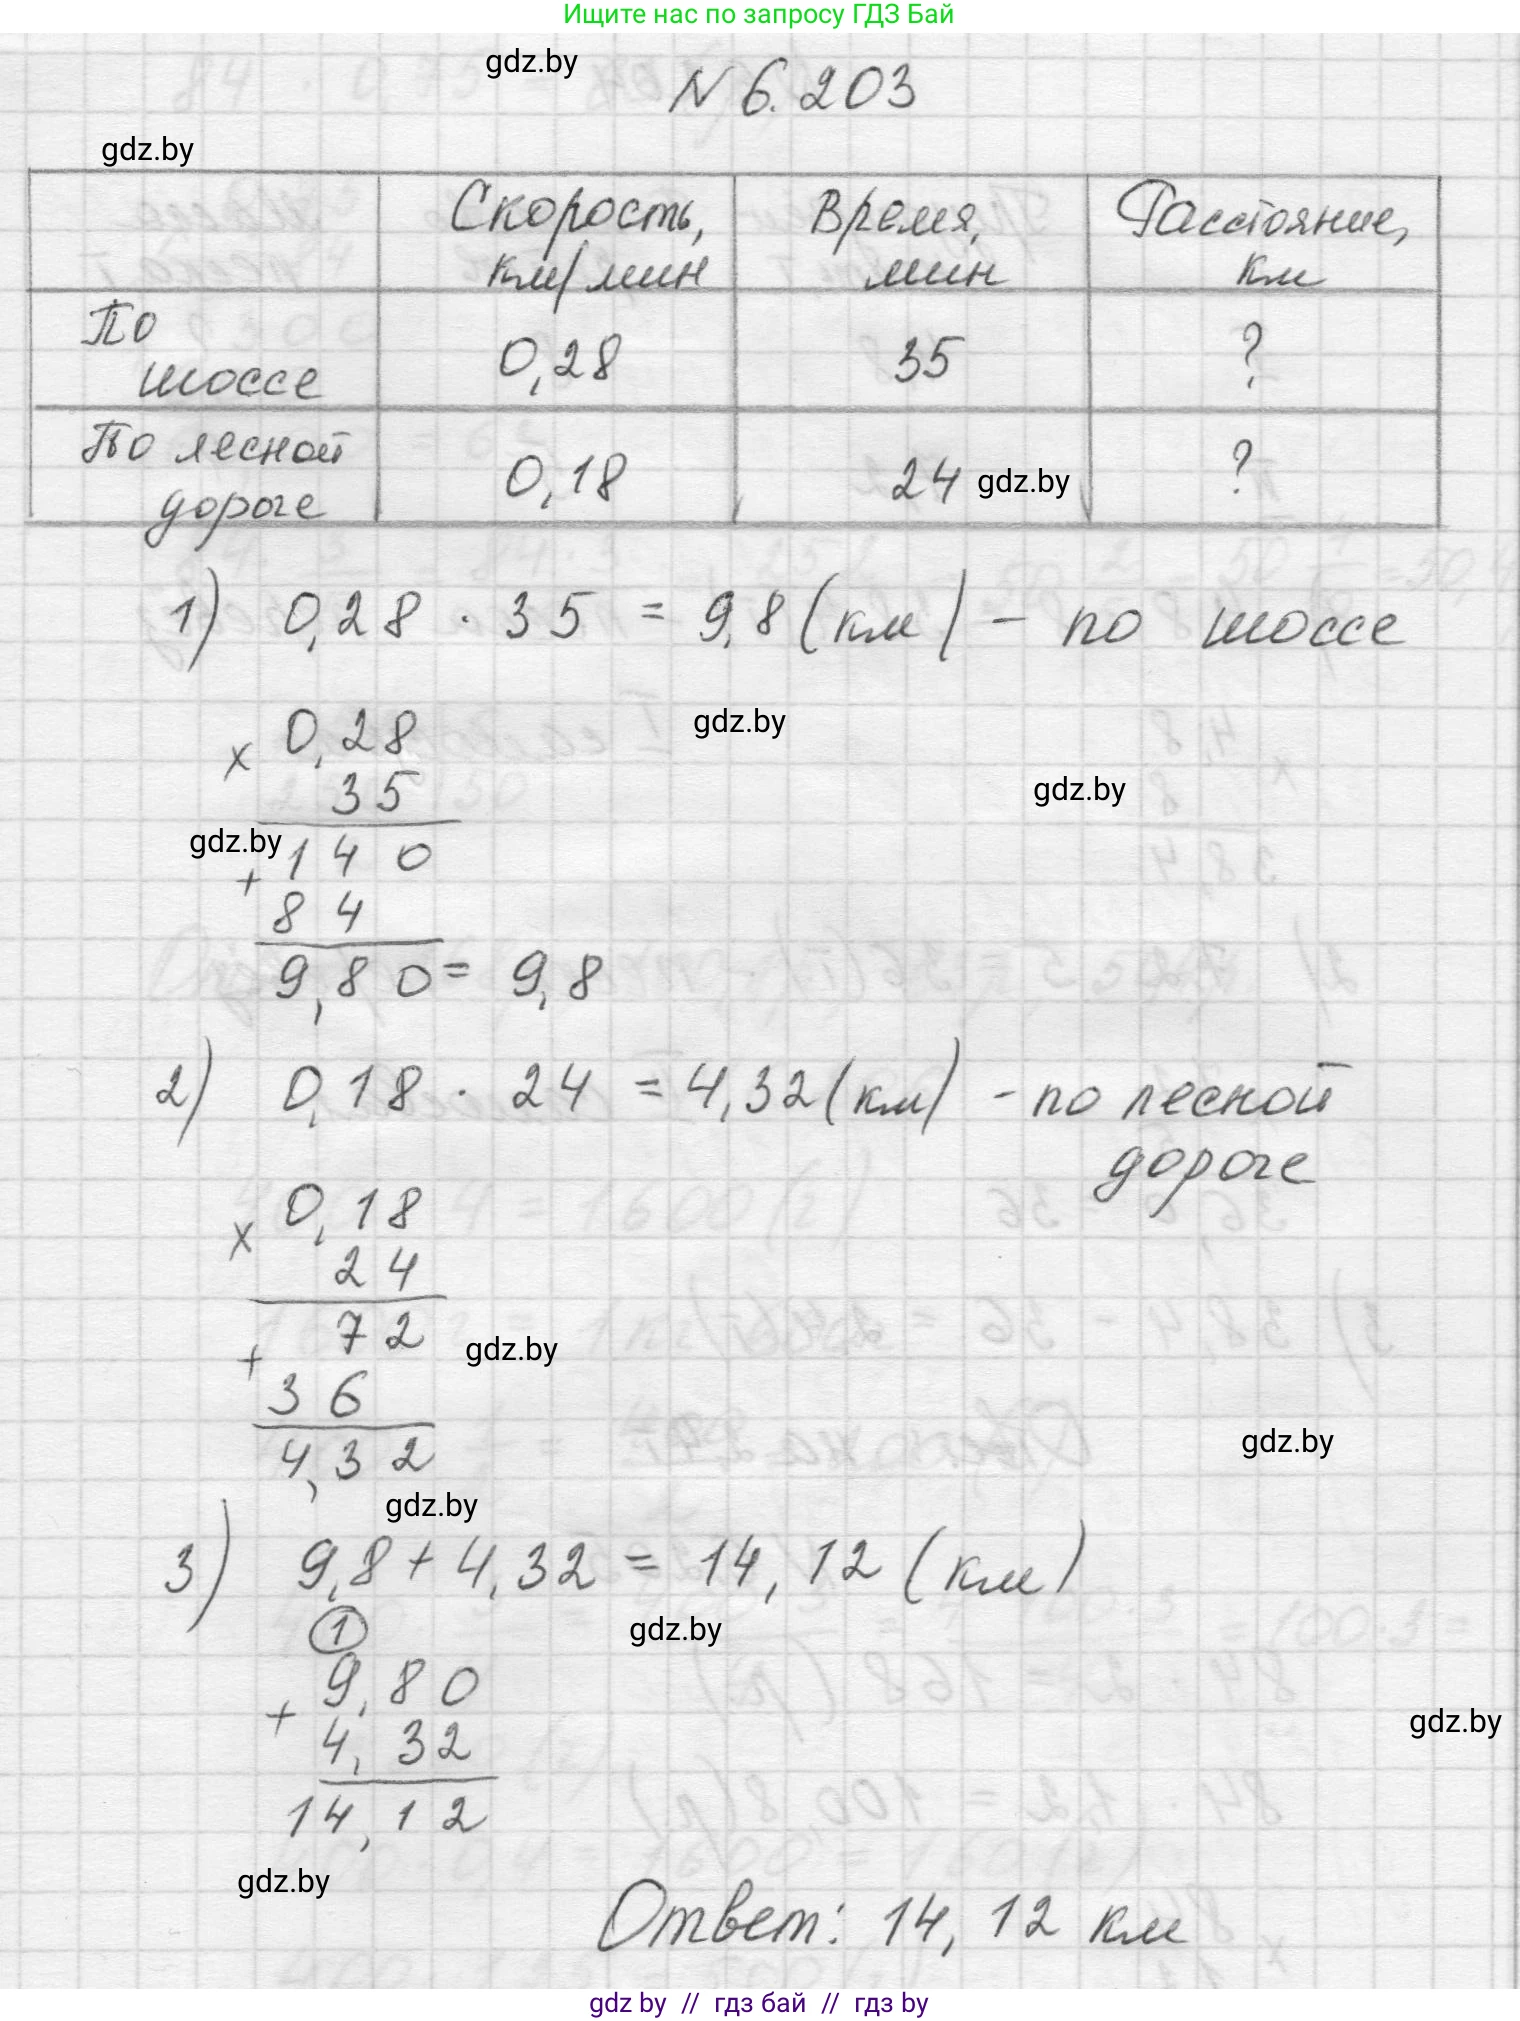 Ищите нас по запросу ГДЗ Бай
gdz.by
N 6.203
gdz.by
Скорость, км/мин
Время, мин
Расстояние, км
По шоссе
0,28
35
?
По лесной дороге
0,18
24
gdz.by
?
1) 0,28 · 35 = 9,8 (км) - по шоссе
gdz.by
× 0,28
35
gdz.by
gdz.by
140
+
84
9,80 = 9,8
2) 0,18 · 24 = 4,32 (км) - по лесной
дороге
× 0,18
24
72
gdz.by
+
36
gdz.by
4,32
gdz.by
3) 9,8 + 4,32 = 14,12 (км)
1
gdz.by
9,80
+
gdz.by
4,32
14,12
gdz.by
Ответ: 14,12 км
gdz by // гдз бай // гдз by